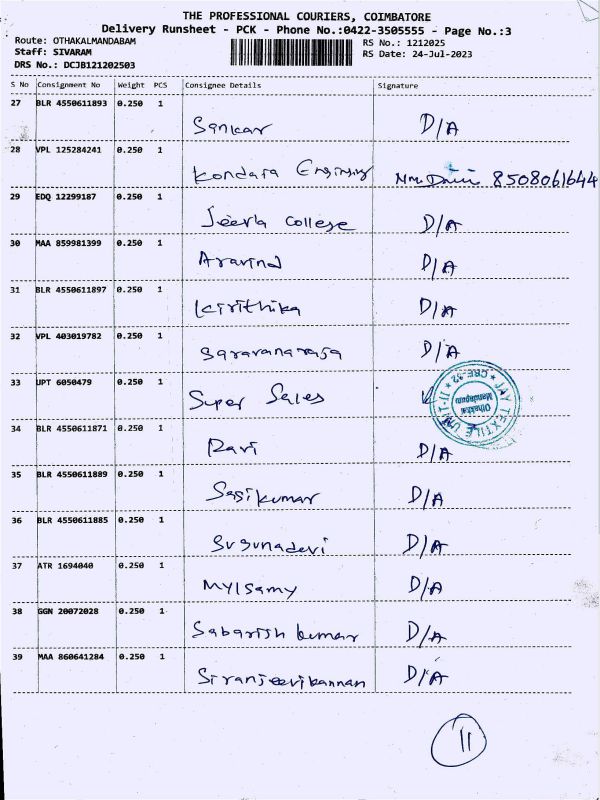 THE PROFESSIONAL COURIERS, COIMBATORE
Delivery Runsheet - PCK - Phone No.:0422-3505555 - Page No.:3
Route: OTHAKALMANDABAM RS No.: 1212025
Staff: SIVARAM RS Date: 24-Jul-2023
DRS No.: DCJB121202503
S No Consignment No Weight PCS Consignee Details Signature
27 BLR 4550611893 0.250 1 Sankar D/A
28 VPL 125284241 0.250 1 8508061644
29 EDQ 12299187 0.250 1 College D/A
30 MAA 859981399 0.250 1 Aravind D/A
31 BLR 4550611897 0.250 1 Kirithika D/A
32 VPL 403019782 0.250 1 Saravanaraja D/A
33 JPT 6050479 0.250 1 Super Sales
JAY TEXTILE UNIT-II CBE-32
Othakkal
Mandapam
34 BLR 4550611871 0.250 1 Ravi D/A
35 BLR 4550611889 0.250 1 Sasikumar D/A
36 BLR 4550611885 0.250 1 Sugunadevi D/A
37 ATR 1694040 0.250 1 Mylsamy D/A
38 GGN 20072028 0.250 1 Sabarish kumar D/A
39 MAA 860641284 0.250 1 Siranjeevikannan D/A
11